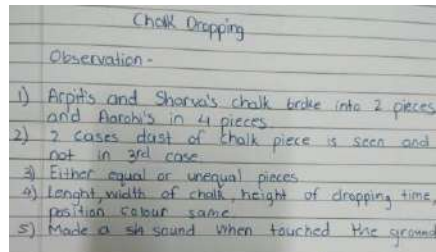 Chalk Dropping
Observation -
1) Arpit's and Sharva's chalk broke into 2 pieces
and Aarohi's in 4 pieces
2) 2 cases dust of chalk piece is seen and
not in 3rd case
3) Either equal or unequal pieces
4) Lenght, width of chalk, height of dropping time,
position colour same
5) Made a sh sound when touched the ground